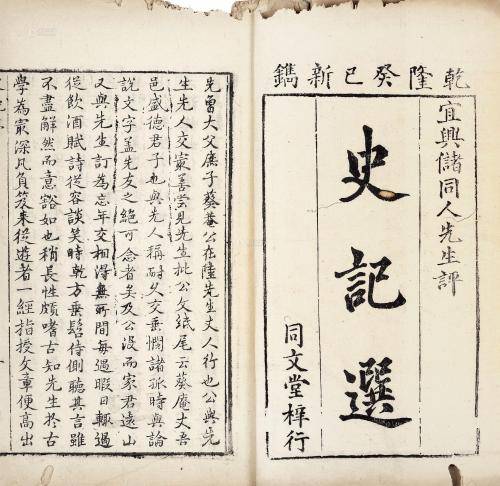 乾隆癸巳新鐫
宜興儲同人先生評
史記選
同文堂梓行
先曾大父庶子葵菴公在陸先生丈人行也公與先
生先人交最善嘗見先生批公文紙尾云葵菴丈吾
邑盛德君子也與先人稱耐久交垂憫諸孤時與論
說文字盖先友之絕可念者矣及公沒而家君遠山
又與先生訂為忘年交相得無所間每過暇日輒過
從飲酒賦詩從容談笑時乾方垂髫侍側聽其言雖
不盡解然而意豁如也稍長性頗嗜古知先生於古
學為最深凡負笈来從遊者一經指授文章便高出